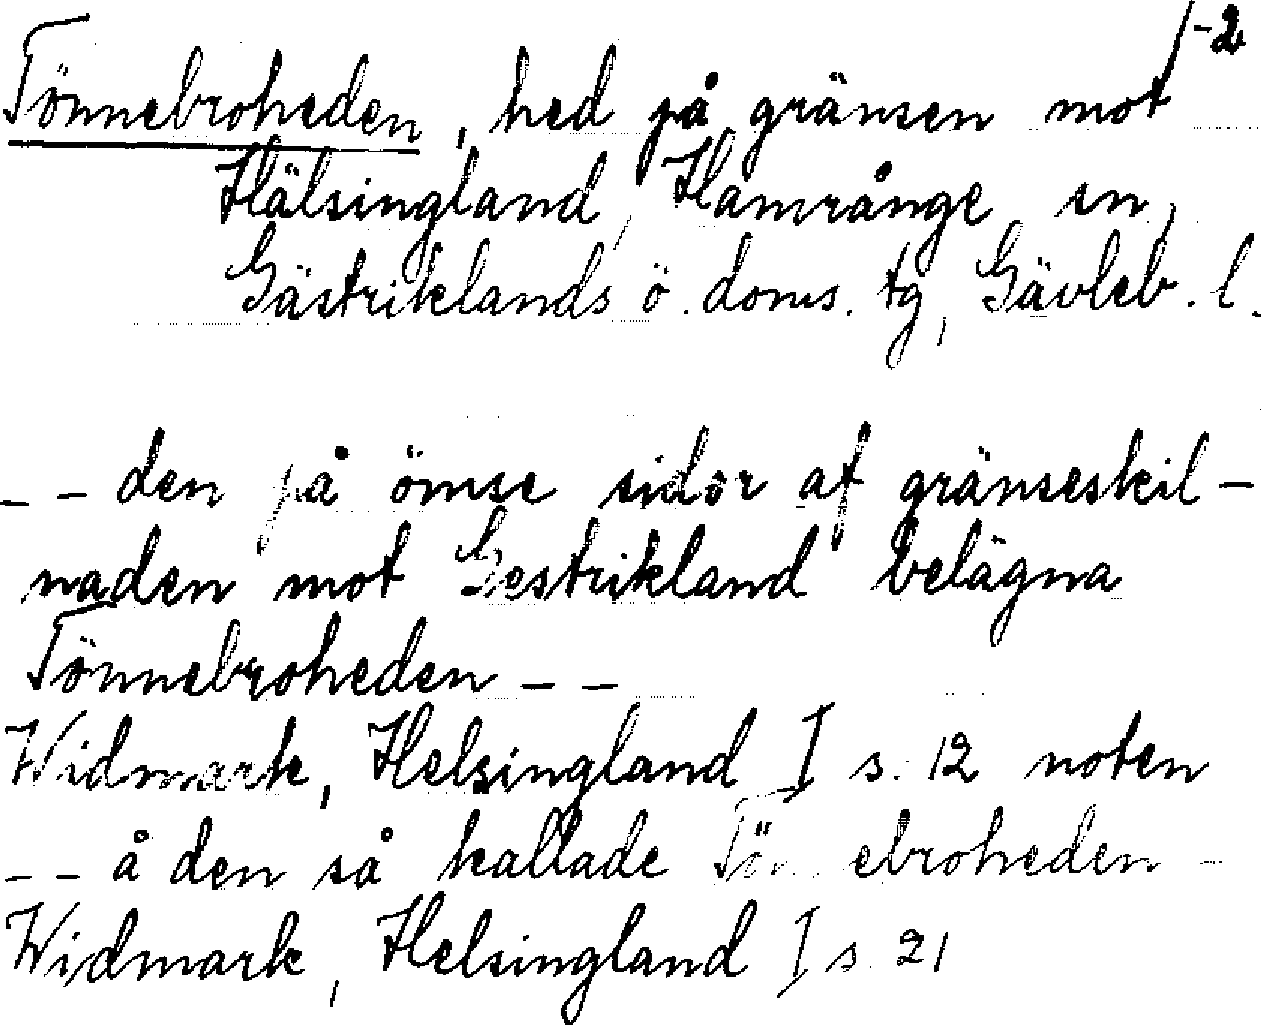 1-2
Tönnebroheden, hed på gränsen mot
Hälsingland, Hamrånge sn,
Gästriklands ö. doms. tg, Gävleb. l.
– – den på ömse sidor af gränseskil–
naden mot Gestrikland belägna
Tönnebroheden – –
Widmark, Helsingland I s. 12 noten
– – å den så kallade Tönnebroheden –
Widmark, Helsingland I s. 21